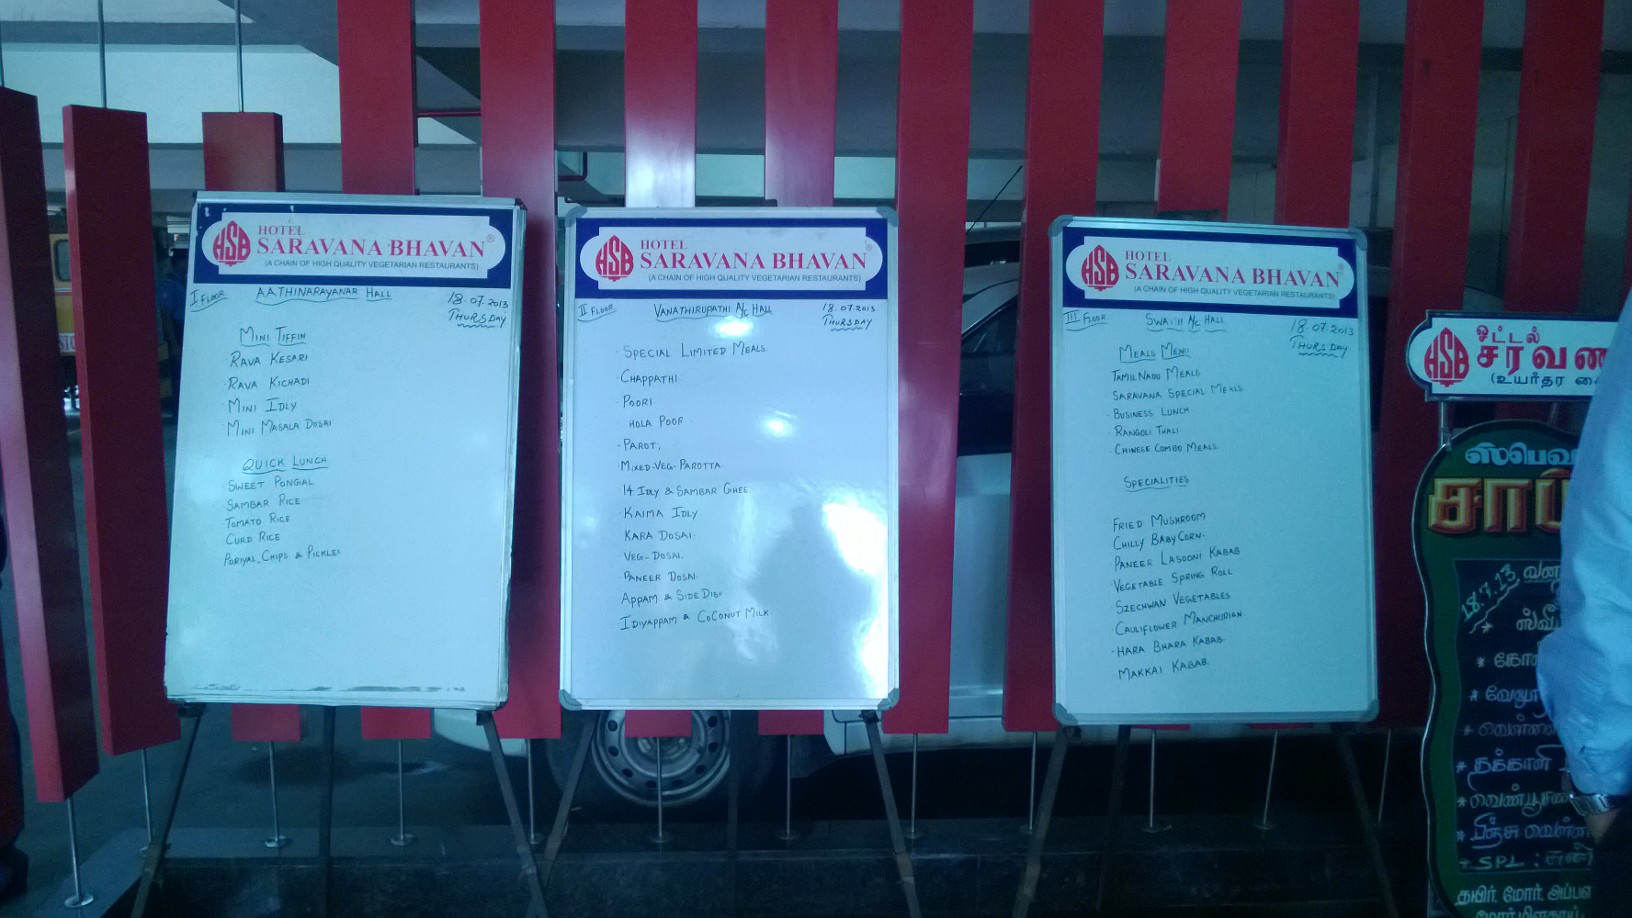 HSB
HOTEL
SARAVANA BHAVAN®
(A CHAIN OF HIGH QUALITY VEGETARIAN RESTAURANTS)
I FLOOR
AATHINARAYANAR HALL
18.07.2013
THURSDAY
MINI TIFFIN
RAVA KESARI
RAVA KICHADI
MINI IDLY
MINI MASALA DOSAI
QUICK LUNCH
SWEET PONGAL
SAMBAR RICE
TOMATO RICE
CURD RICE
PORIYAL, CHIPS & PICKLES
HSB
HOTEL
SARAVANA BHAVAN®
(A CHAIN OF HIGH QUALITY VEGETARIAN RESTAURANTS)
II FLOOR
VANATHIRUPATHI A/C HALL
18.07.2013
THURSDAY
SPECIAL LIMITED MEALS
CHAPPATHI
POORI
HOLA POOR
PAROT
MIXED-VEG-PAROTTA
14 IDLY & SAMBAR GHEE
KAIMA IDLY
KARA DOSAI
VEG-DOSAI
PANEER DOSAI
APPAM & SIDE DISH
IDIYAPPAM & COCONUT MILK
HSB
HOTEL
SARAVANA BHAVAN®
(A CHAIN OF HIGH QUALITY VEGETARIAN RESTAURANTS)
III FLOOR
SWATHI A/C HALL
18.07.2013
THURSDAY
MEALS MENU
TAMILNADU MEALS
SARAVANA SPECIAL MEALS
BUSINESS LUNCH
RANGOLI THALI
CHINESE COMBO MEALS
SPECIALITIES
FRIED MUSHROOM
CHILLY BABYCORN
PANEER LASOONI KABAB
VEGETABLE SPRING ROLL
SZECHWAN VEGETABLES
CAULIFLOWER MANCHURIAN
HARA BHARA KABAB
MAKKAI KABAB
HSB
ஓட்டல்
சரவண
(உயர்தர
ஸ்பெஷ
சாப்
18.7.13
* தக்காளி
* SPL :
தயிர், மோர், அப்பள